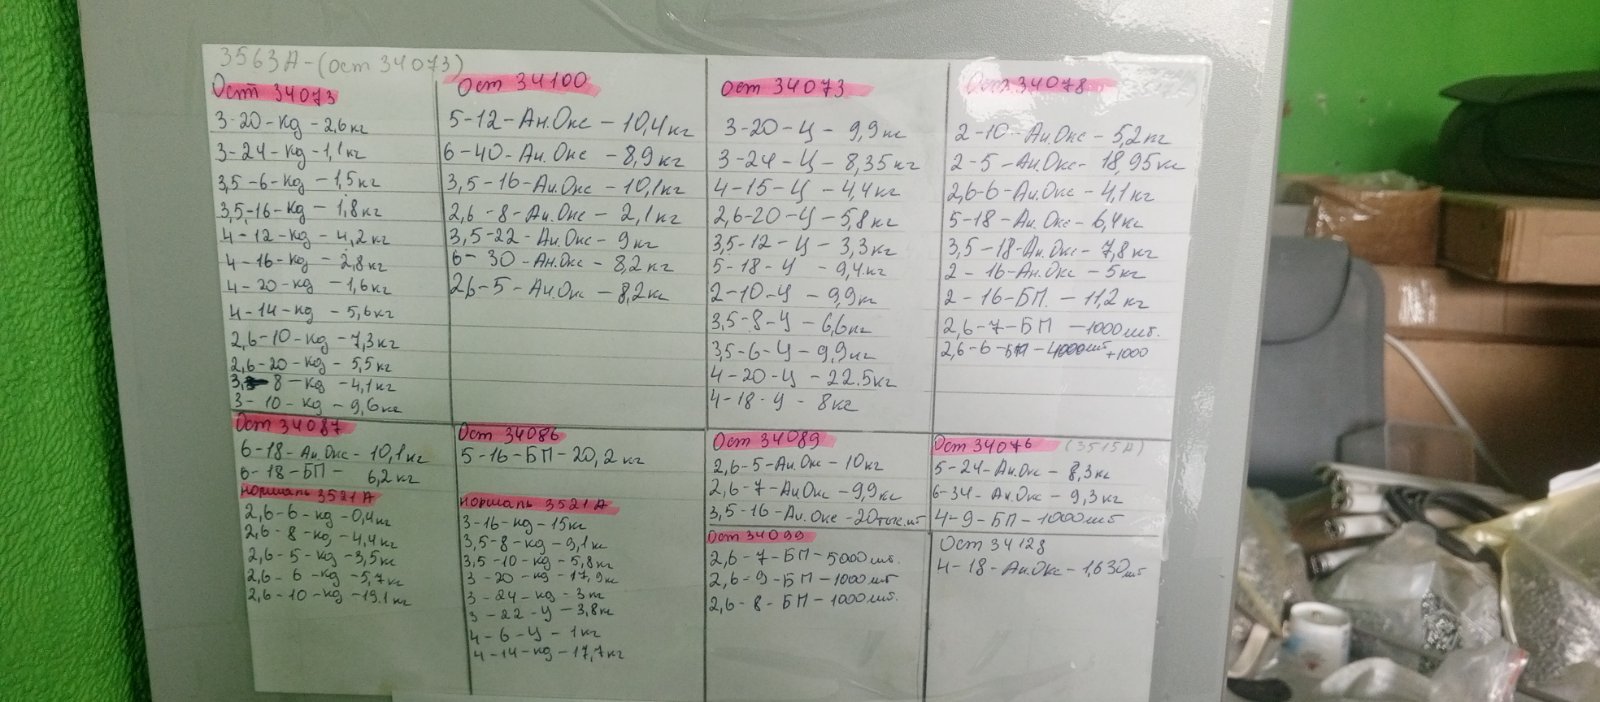 3563А-(ост 34073)
Ост 34073
3-20-кд-2,6кг
3-24-кд-1,1кг
3,5-6-кд-1,5кг
3,5-16-кд-1,8кг
4-12-кд-4,2кг
4-16-кд-2,8кг
4-20-кд-1,6кг
4-14-кд-5,6кг
2,6-10-кд-7,3кг
2,6-20-кд-5,5кг
3,-8-кд-4,1кг
3-10-кд-9,6кг
Ост 34100
5-12-Ан.Окс-10,4кг
6-40-Ан.Окс-8,9кг
3,5-16-Ан.Окс-10,1кг
2,6-8-Ан.Окс-2,1кг
3,5-22-Ан.Окс-9кг
6-30-Ан.Окс-8,2кг
2,6-5-Ан.Окс-8,2кг
Ост 34073
3-20-Ц-9,9кг
3-24-Ц-8,35кг
4-15-Ц-4,4кг
2,6-20-Ц-5,8кг
3,5-12-Ц-3,3кг
5-18-Ц-9,4кг
2-10-Ц-9,9кг
3,5-8-Ц-6,6кг
3,5-6-Ц-9,9кг
4-20-Ц-22.5кг
4-18-Ц-8кг
Ост 34078
2-10-Ан.Окс-5,2кг
2-5-Ан.Окс-18,95кг
2,6-6-Ан.Окс-4,1кг
5-18-Ан.Окс-6,4кг
3,5-18-Ан.Окс-7,8кг
2-16-Ан.Окс-5кг
2-16-БП-11,2кг
2,6-7-БП-1000шт.
2,6-6-БП-4000шт+1000
Ост 34087
6-18-Ан.Окс-10,1кг
6-18-БП-6,2кг
нормаль 3521А
2,6-6-кд-0,4кг
2,6-8-кд-4,4кг
2,6-5-кд-3,5кг
2,6-6-кд-5,7кг
2,6-10-кд-19.1кг
Ост 34086
5-16-БП-20,2кг
нормаль 3521А
3-16-кд-15кг
3,5-8-кд-9,1кг
3,5-10-кд-5,8кг
3-20-кд-17,9кг
3-24-кд-3кг
3-22-Ц-3,8кг
4-6-Ц-1кг
4-14-кд-17,7кг
Ост 34089
2,6-5-Ан.Окс-10кг
2,6-7-Ан.Окс-9,9кг
3,5-16-Ан.Окс-20тыс.шт
Ост 34099
2,6-7-БП-5000шт.
2,6-9-БП-1000шт.
2,6-8-БП-1000шт.
Ост 34076 (3515А)
5-24-Ан.Окс-8,3кг
6-34-Ан.Окс-9,3кг
4-9-БП-1000шт
Ост 34128
4-18-Ан.Окс-1,630шт